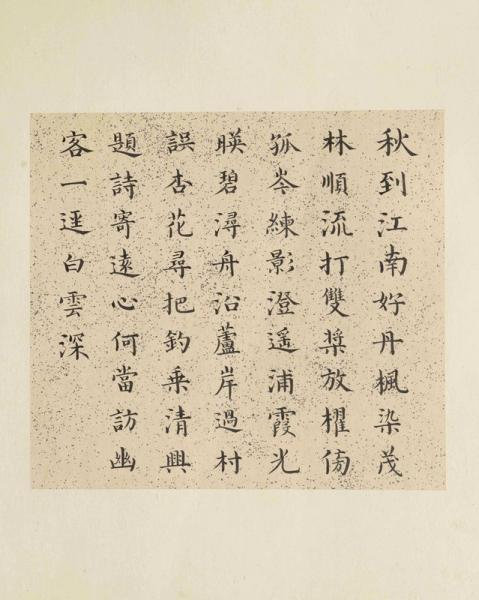 秋到江南好丹楓染茂
林順流打雙槳放櫂傍
孤岑練影澄遥浦霞光
暎碧潯舟沿蘆岸過村
誤杏花尋把釣乗清興
題詩寄遠心何當訪幽
客一逕白雲深